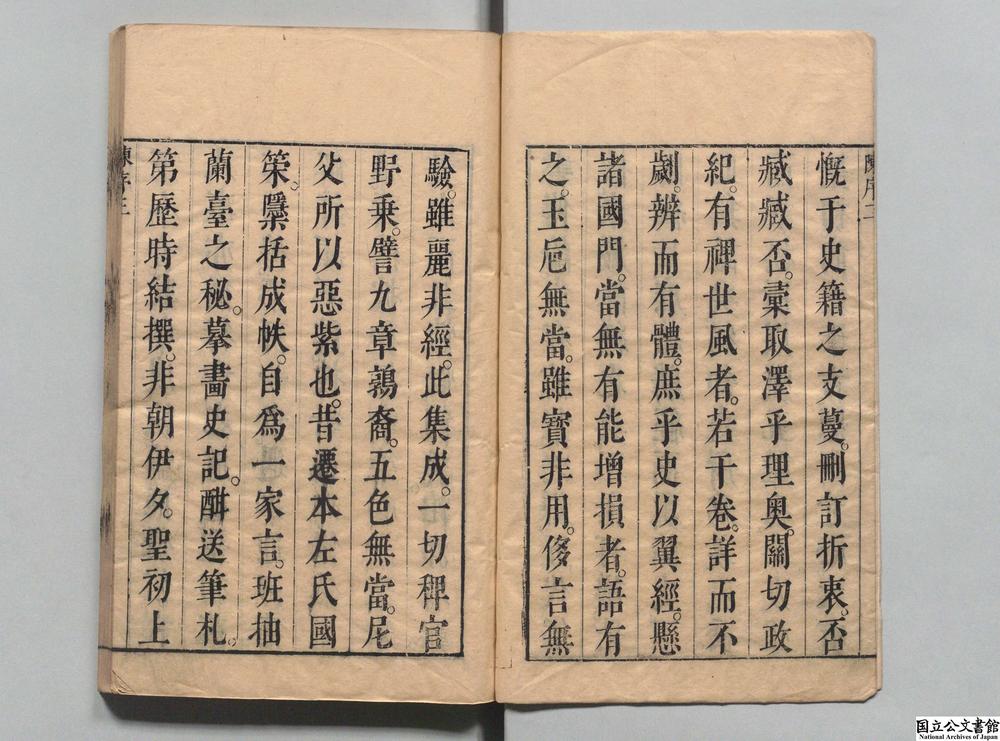 慨于史籍之支蔓。刪訂折衷。否
臧臧否。彙取澤乎理奧。關切政
紀。有裨世風者。若干卷。詳而不
劌。辨而有體。庶乎史以翼經。懸
諸國門。當無有能增損者。語有
之。玉巵無當。雖寶非用。侈言無
驗。雖麗非經。此集成。一切稗官
野乗。譬九章鶉裔。五色無當。尼
父所以惡紫也。昔遷本左氏國
筞。檃括成帙。自爲一家言。班抽
蘭臺之秘。摹畵史記。酣送筆札。
第歷時結撰。非朝伊夕。聖初上
陳序三
国立公文書館
National Archives of Japan